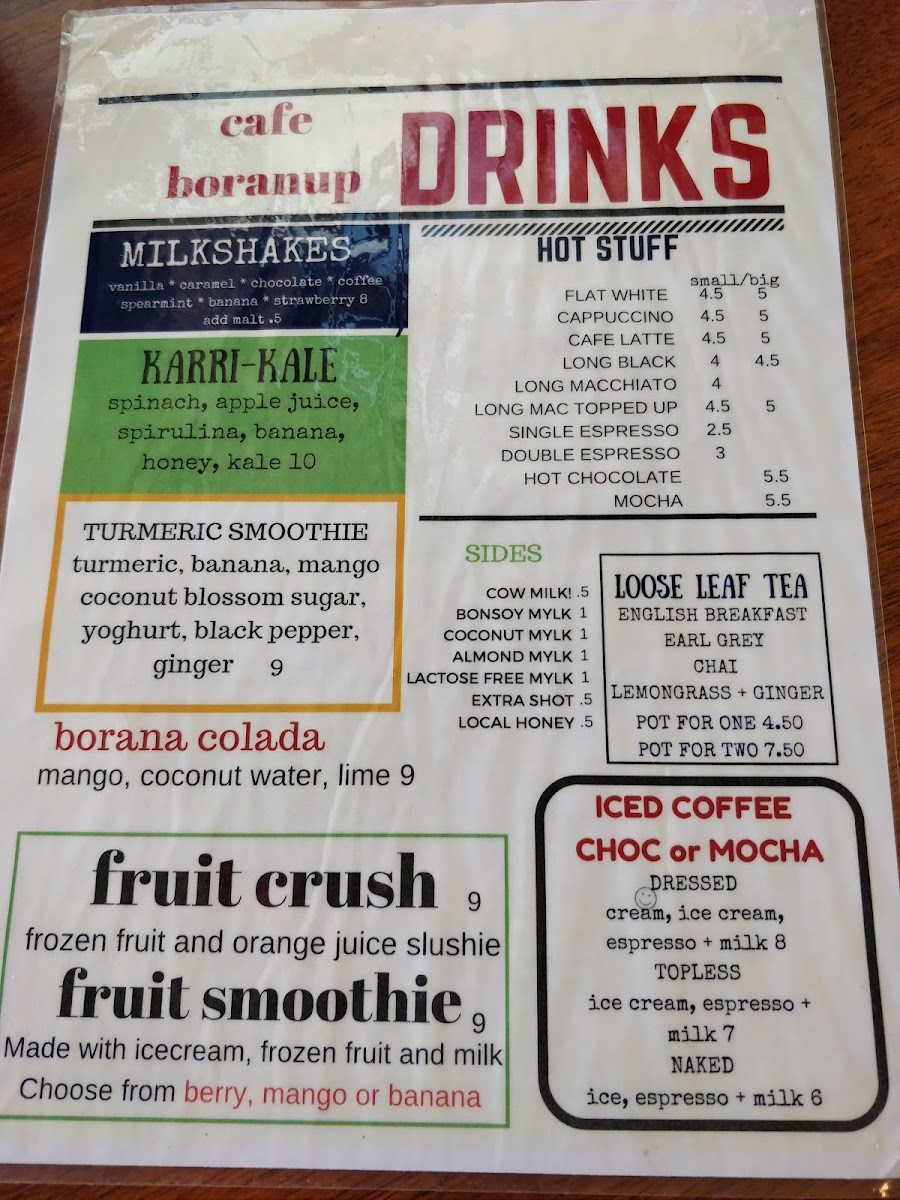 cafe
boranup
DRINKS
MILKSHAKES
vanilla * caramel * chocolate * coffee
spearmint * banana * strawberry 8
add malt .5
KARRI-KALE
spinach, apple juice,
spirulina, banana,
honey, kale 10
TURMERIC SMOOTHIE
turmeric, banana, mango
coconut blossom sugar,
yoghurt, black pepper,
ginger 9
borana colada
mango, coconut water, lime 9
fruit crush 9
frozen fruit and orange juice slushie
fruit smoothie 9
Made with icecream, frozen fruit and milk
Choose from berry, mango or banana
HOT STUFF
small/big
FLAT WHITE 4.5 5
CAPPUCCINO 4.5 5
CAFE LATTE 4.5 5
LONG BLACK 4 4.5
LONG MACCHIATO 4
LONG MAC TOPPED UP 4.5 5
SINGLE ESPRESSO 2.5
DOUBLE ESPRESSO 3
HOT CHOCOLATE 5.5
MOCHA 5.5
SIDES
COW MILK! .5
BONSOY MYLK 1
COCONUT MYLK 1
ALMOND MYLK 1
LACTOSE FREE MYLK 1
EXTRA SHOT .5
LOCAL HONEY .5
LOOSE LEAF TEA
ENGLISH BREAKFAST
EARL GREY
CHAI
LEMONGRASS + GINGER
POT FOR ONE 4.50
POT FOR TWO 7.50
ICED COFFEE
CHOC or MOCHA
DRESSED
cream, ice cream,
espresso + milk 8
TOPLESS
ice cream, espresso +
milk 7
NAKED
ice, espresso + milk 6